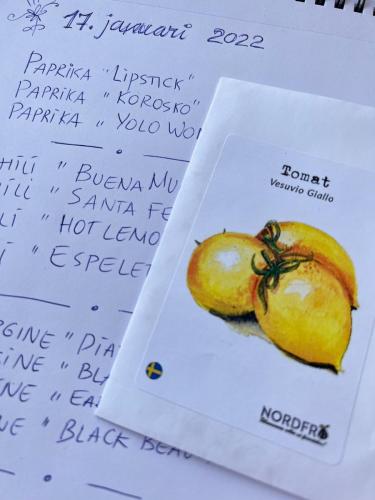 17. januari 2022
PAPRIKA "LIPSTICK"
PAPRIKA "KOROSKO"
PAPRIKA "YOLO WO
HILI "BUENA MU
ILI "SANTA FE
LI "HOT LEMO
I "ESPELET
RGINE "DIA
GINE "BLA
INE "EA
NE "BLACK BEAU
Tomat
Vesuvio Giallo
NORDFRÖ